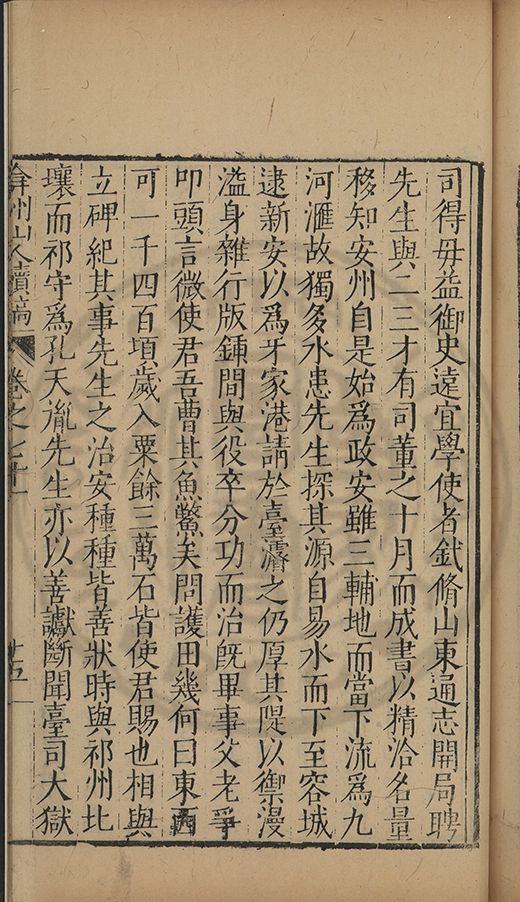 司得毋益御史遠宜學使者鉞脩山東通志開局聘
先生與二三才有司董之十月而成書以精洽名量
移知安州自是始爲政安雖三輔地而當下流爲九
河滙故獨多水患先生探其源自易水而下至容城
逮新安以爲牙家港請於臺濬之仍厚其隄以禦漫
溢身雜行版鍤間與役卒分功而治旣畢事父老爭
叩頭言微使君吾曹其魚鱉矣問護田幾何曰東西
可一千四百頃歲入粟餘三萬石皆使君賜也相與
立碑紀其事先生之治安種種皆善狀時與祁州比
壤而祁守爲孔天胤先生亦以善讞斷聞臺司大獄
弇州山人續稿 卷之七十一 十五